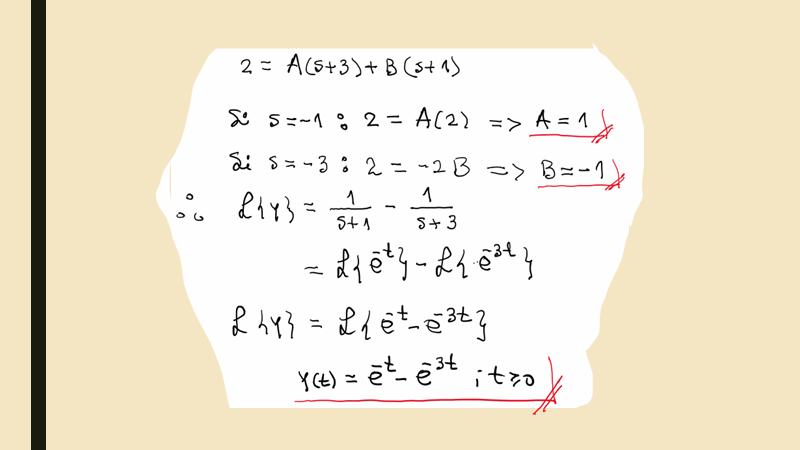 2 = A(s+3) + B(s+1)
Si s=-1 : 2 = A(2) => A = 1
Si s=-3 : 2 = -2B => B = -1
∴ ℒ{y} = 1/(s+1) - 1/(s+3)
= ℒ{e^-t} - ℒ{e^-3t}
ℒ{y} = ℒ{e^-t - e^-3t}
y(t) = e^-t - e^-3t ; t≥0